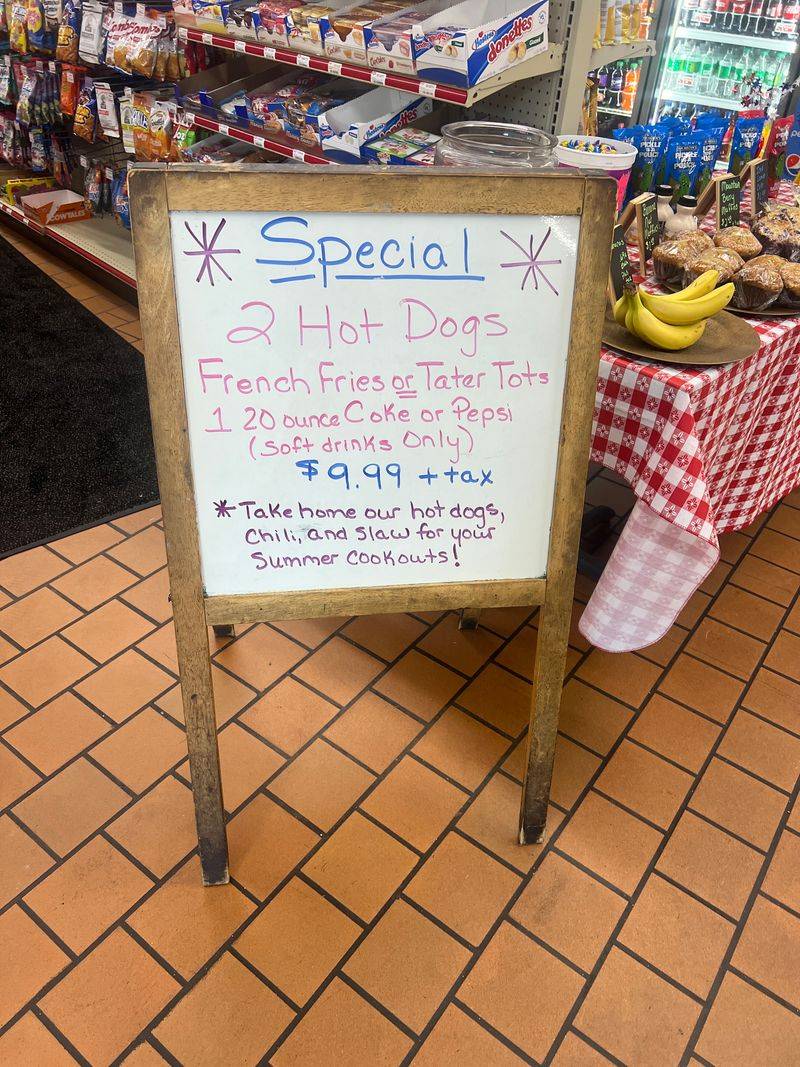 Special
2 Hot Dogs
French Fries or Tater Tots
1 20 ounce Coke or Pepsi
(Soft drinks Only)
$9.99 + tax
* Take home our hot dogs,
Chili, and Slaw for your
Summer Cookouts!
Hostess
donettes
Combos
COWTALES
PICKLE
pepsi